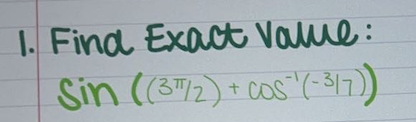 1. Find Exact Value:
sin ((3π/2) + cos⁻¹(-3/7))